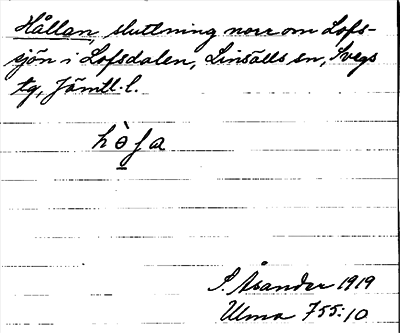 Hållan, sluttning norr om Lofs-
sjön i Lofsdalen, Linsälls sn, Svegs
tg, Jämtl. l.
Åsander 1919
Ulma 755:10